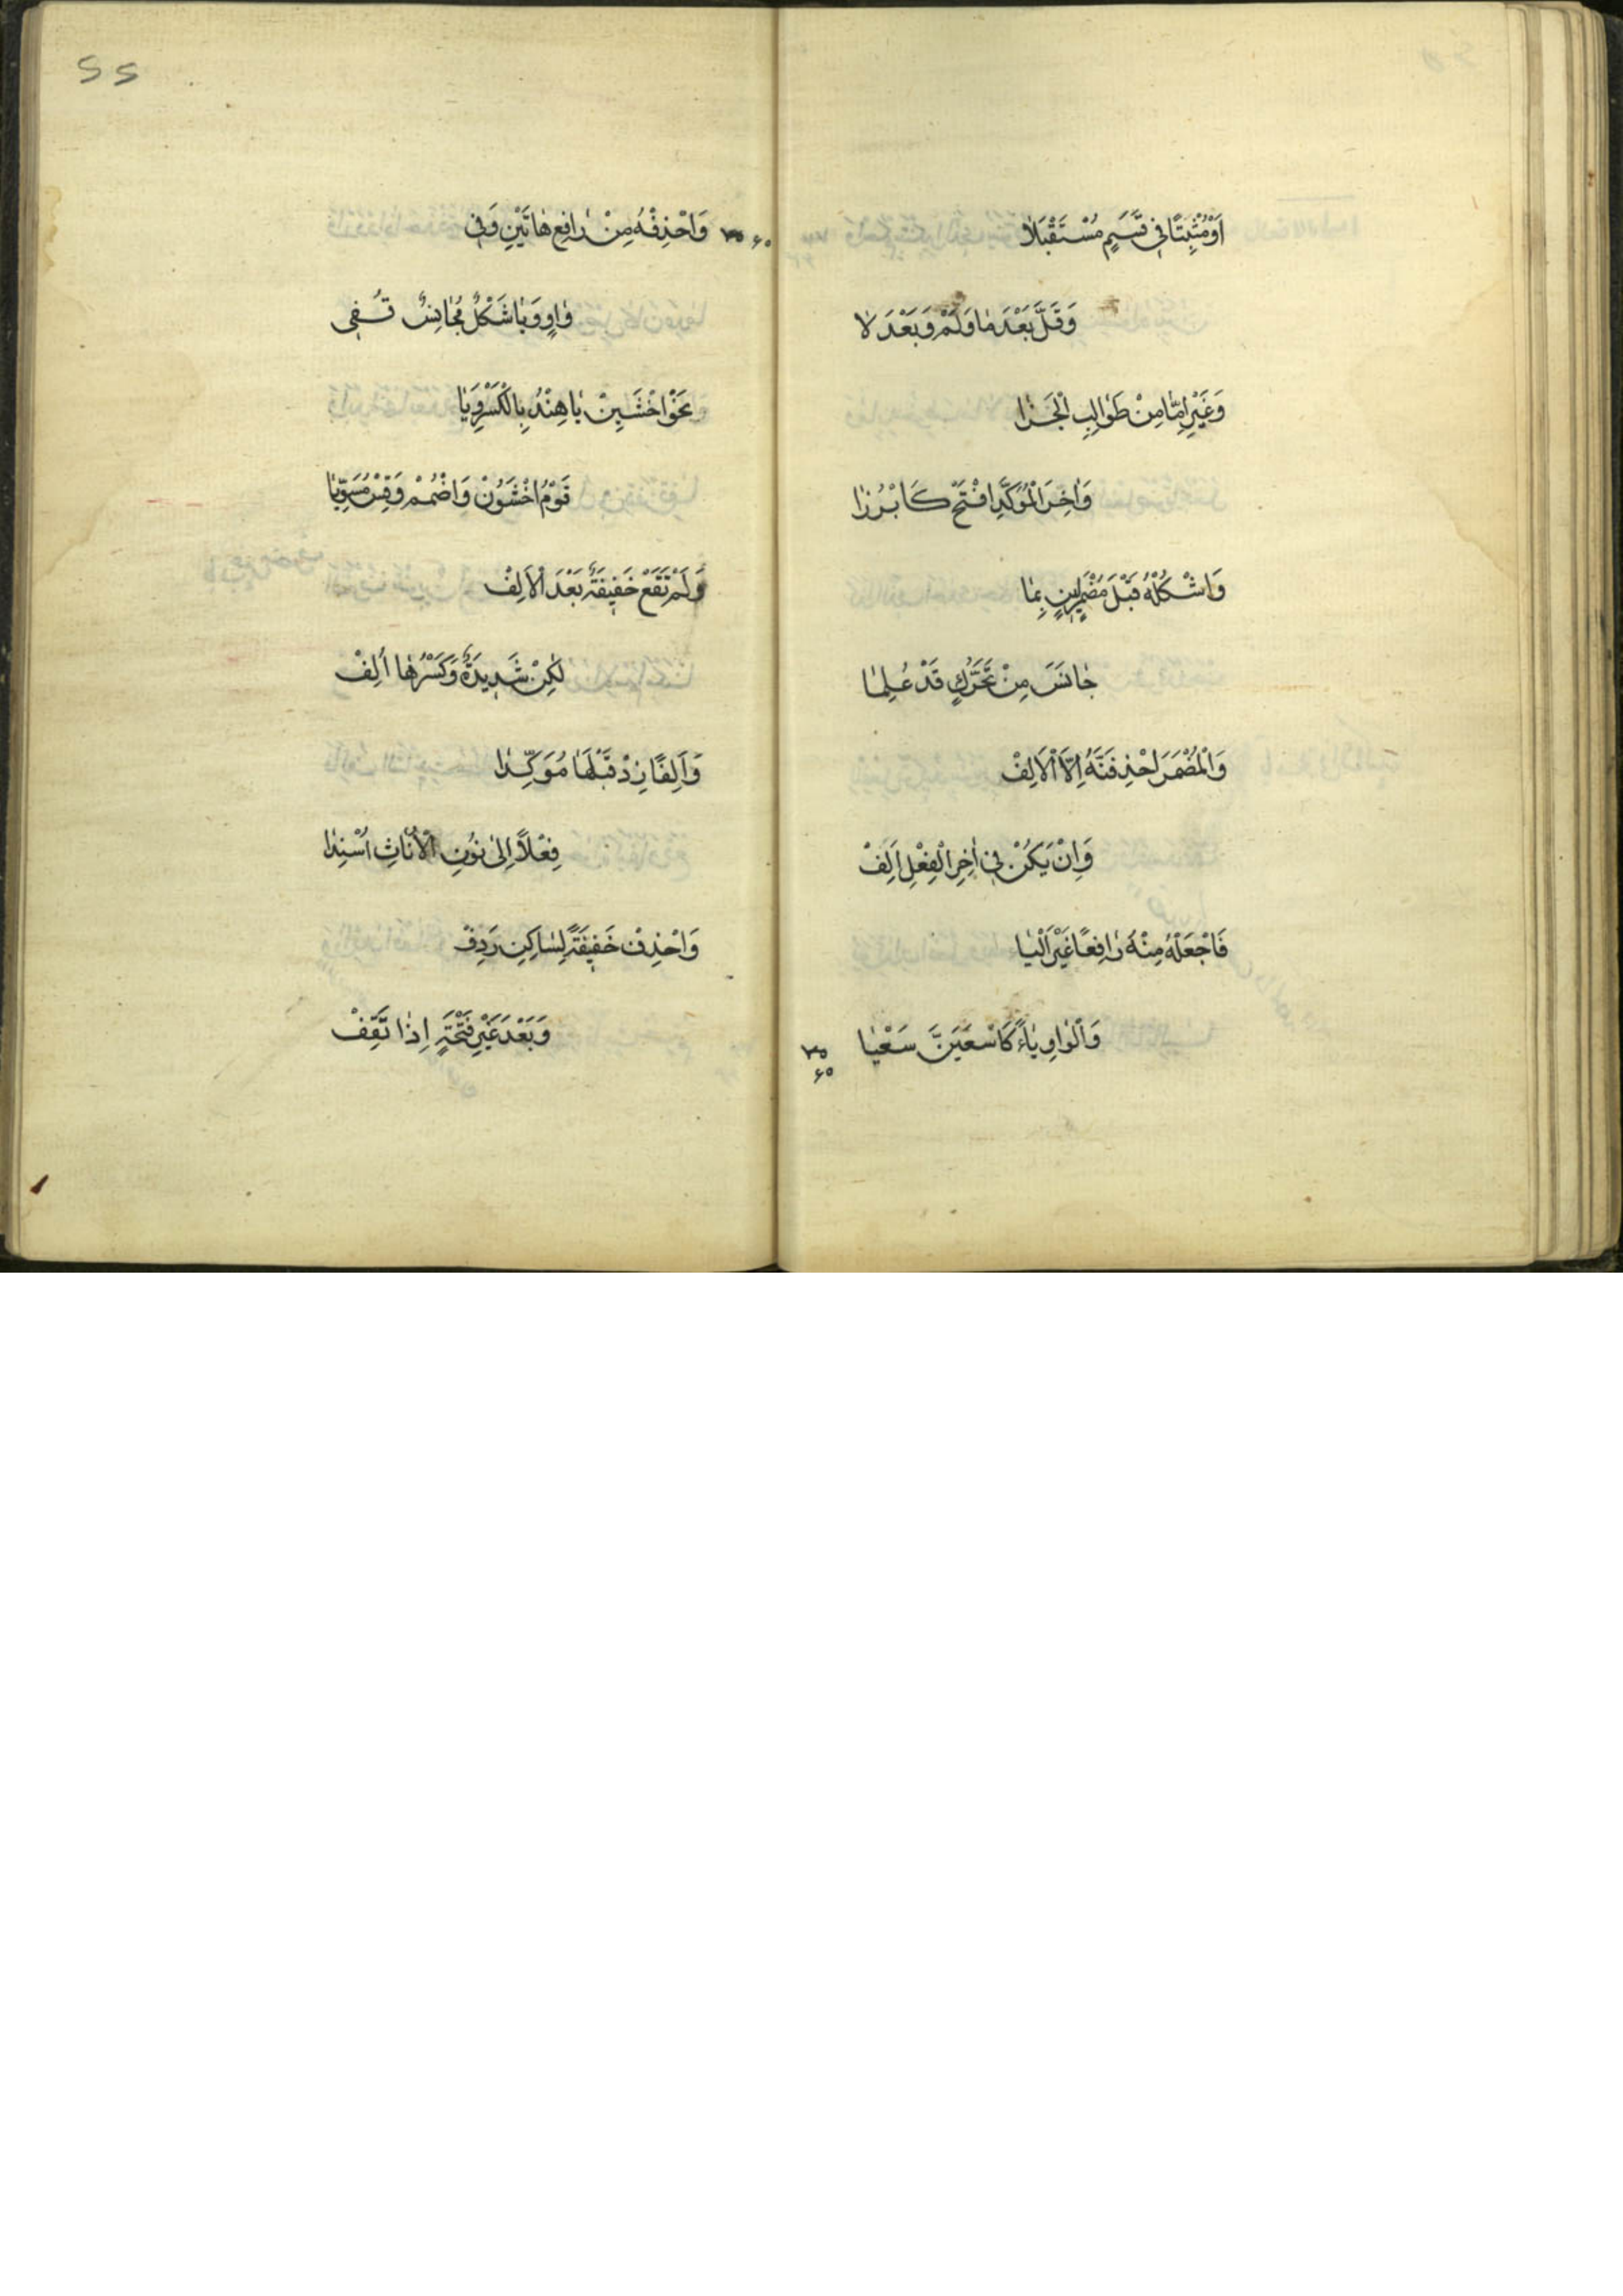 اَوْ مُثْبِتًا فِي قَسَمٍ مُسْتَقْبَلاٰ
وَقَلَّ بَعْدَ مٰا وَلَمْ وَبَعْدَ لاٰ
وَغَيْرِ اِمّٰا مِنْ طَوٰالِبِ الْجَزٰا
وَاٰخِرَ الْمُؤَكَّدِ افْتَحْ كَابْرُزٰا
وَاشْكُلْهُ قَبْلَ مُضْمَرٍ لَيِنٍ بِمٰا
جٰانَسَ مِنْ تَحَرُّكٍ قَدْ عُلِمٰا
وَالْمُضْمَرَ احْذِفَنَّهُ اِلاَّ الْاَلِفْ
وَاِنْ يَكُنْ فِي اٰخِرِ الْفِعْلِ اَلِفْ
فَاجْعَلْهُ مِنْهُ رٰافِعًا غَيْرَ الْيٰا
وَالْوٰاوِ يٰاءً كَاسْعَيَنَّ سَعْيٰا
٣٥
۶۵
55
۶۵ ٣٥ وَاحْذِفْهُ مِنْ رٰافِعِ هٰاتَيْنِ وَفِي
وٰاوٍ وَيٰا شَكْلٌ مُجٰانِسٌ قُفِي
نَحْوُ اخْشَيِنْ يٰا هِنْدُ بِالْكَسْرِ وَيٰا
قَوْمُ اخْشَوُنْ وَاضْمُمْ وَقِسْ مُسَوِّيٰا
وَلَمْ تَقَعْ خَفِيفَةٌ بَعْدَ الْاَلِفْ
لٰكِنْ شَدِيدَةٌ وَكَسْرُهٰا اُلِفْ
وَاَلِفًا زِدْ قَبْلَهٰا مُؤَكِّدٰا
فِعْلاً اِلىٰ نُونِ الْاُنٰاثِ اُسْنِدٰا
وَاحْذِفْ خَفِيفَةً لِسٰاكِنٍ رَدِفْ
وَبَعْدَ غَيْرِ فَتْحَةٍ اِذٰا تَقِفْ